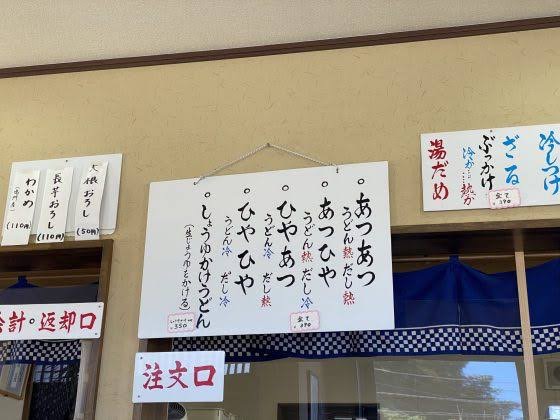 大根おろし
(50円)
長芋おろし
(110円)
わかめ
(110円)
会計・返却口
あつあつ
うどん熱 だし熱
あつひや
うどん熱 だし冷
ひやあつ
うどん冷 だし熱
ひやひや
うどん冷 だし冷
しょうゆかけうどん
(生じょうゆをかける)
全て
290
350
注文口
冷しつけ
ざる
ぶっかけ
冷か…熱か
湯だめ
全て
390